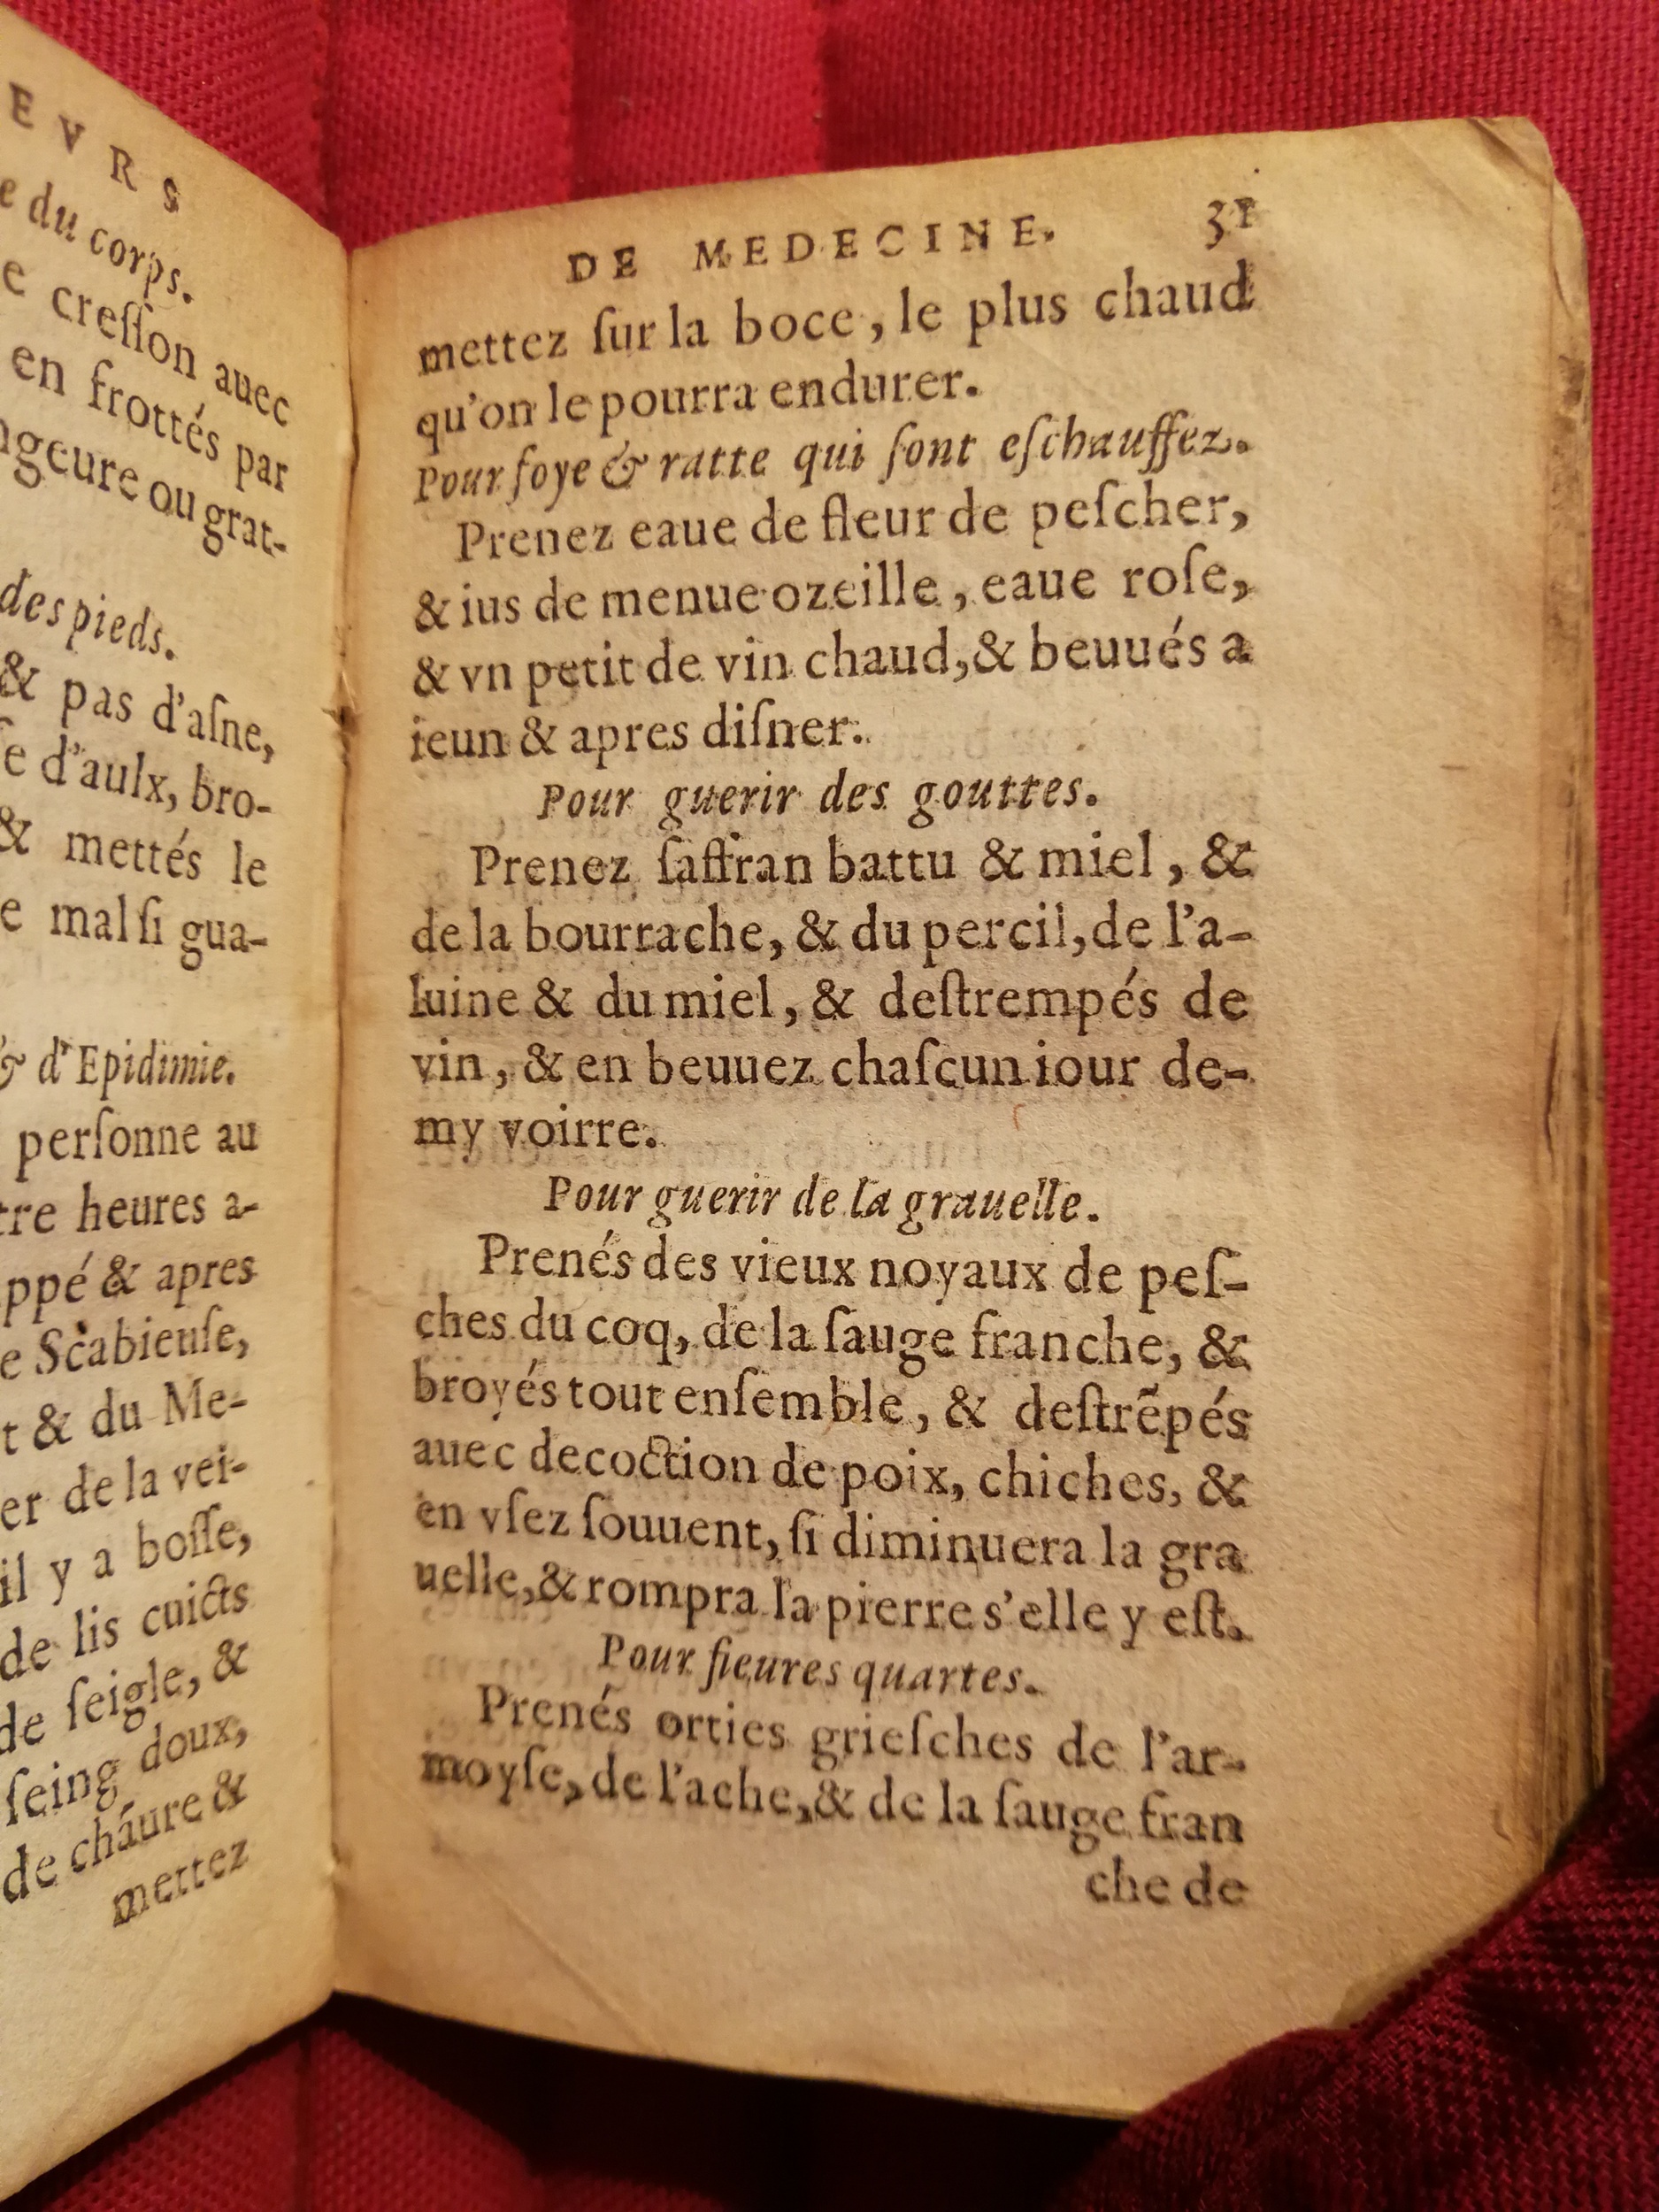 EVRS
e du corps.
e creſſon auec
en frottés par
ngeure ou grat-
des pieds.
& pas d'aſne,
ſe d'aulx, bro-
& mettés le
e mal ſi gua-
& d'Epidimie.
perſonne au
tre heures a-
ppé & apres
e Scabieuſe,
t & du Me-
er de la vei-
il y a boſſe,
de lis cuicts
de ſeigle, &
ſeing doux,
de cháure &
mettez
DE MEDECINE. 31
mettez ſur la boce, le plus chaud
qu'on le pourra endurer.
Pour foye & ratte qui ſont eſchauffez.
Prenez eaue de fleur de peſcher,
& ius de menue ozeille, eaue roſe,
& vn petit de vin chaud, & beuués a
ieun & apres diſner.
Pour guerir des gouttes.
Prenez ſaffran battu & miel, &
de la bourrache, & du percil, de l'a-
luine & du miel, & deſtrempés de
vin, & en beuuez chaſcun iour de-
my voirre.
Pour guerir de la grauelle.
Prenés des vieux noyaux de peſ-
ches du coq, de la ſauge franche, &
broyés tout enſemble, & deſtrẽpés
auec decoction de poix, chiches, &
en vſez ſouuent, ſi diminuera la gra
uelle, & rompra la pierre s'elle y eſt.
Pour fieures quartes.
Prenés orties grieſches de l'ar-
moyſe, de l'ache, & de la ſauge fran
che de